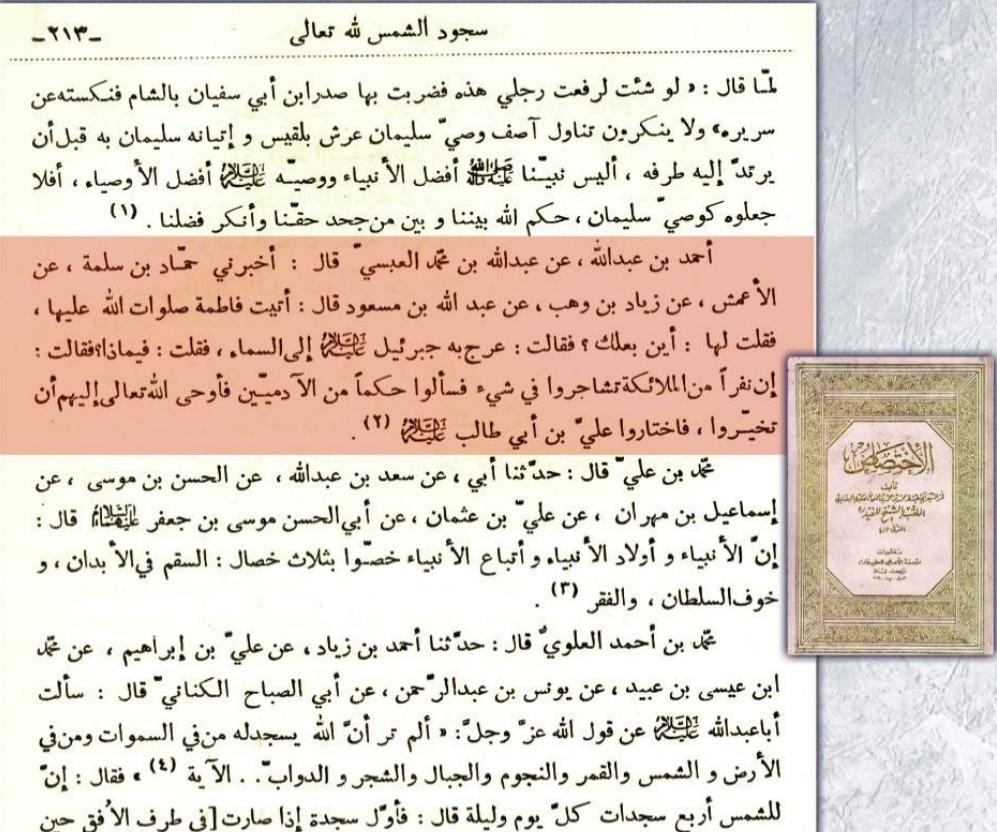 سجود الشمس لله تعالى
ـ٢١٣ـ
لمّا قال : « لو شئت لرفعت رجلي هذه فضربت بها صدر ابن أبي سفيان بالشام فنكسته عن
سريره» ولا ينكرون تناول آصف وصيّ سليمان عرش بلقيس و إتيانه سليمان به قبل أن
يرتدّ إليه طرفه ، أليس نبيّنا صلى الله عليه وآله أفضل الأنبياء ووصيّه عليه السلام أفضل الأوصياء ، أفلا
جعلوه كوصيّ سليمان ، حكم الله بيننا و بين من جحد حقّنا وأنكر فضلنا . (١)
أحمد بن عبدالله ، عن عبدالله بن محمد العبسيّ قال : أخبرني حمّاد بن سلمة ، عن
الأعمش ، عن زياد بن وهب ، عن عبد الله بن مسعود قال : أتيت فاطمة صلوات الله عليها ،
فقلت لها : أين بعلك ؟ فقالت : عرج به جبرئيل عليه السلام إلى السماء ، فقلت : فيماذا؟ فقالت :
إن نفراً من الملائكة تشاجروا في شيء فسألوا حكماً من الآدميّين فأوحى الله تعالى إليهم أن
تخيّروا ، فاختاروا عليّ بن أبي طالب عليه السلام (٢) .
محمد بن عليّ قال : حدّثنا أبي ، عن سعد بن عبدالله ، عن الحسن بن موسى ، عن
إسماعيل بن مهران ، عن عليّ بن عثمان ، عن أبي الحسن موسى بن جعفر عليهما السلام قال :
إنّ الأنبياء و أولاد الأنبياء و أتباع الأنبياء خصّوا بثلاث خصال : السقم في الأبدان ، و
خوف السلطان ، والفقر (٣) .
محمد بن أحمد العلويّ قال : حدّثنا أحمد بن زياد ، عن عليّ بن إبراهيم ، عن محمد
ابن عيسى بن عبيد ، عن يونس بن عبدالرّحمن ، عن أبي الصباح الكنانيّ قال : سألت
أباعبدالله عليه السلام عن قول الله عزّ وجلّ: « ألم تر أنّ الله يسجدله من في السموات ومن في
الأرض و الشمس والقمر والنجوم والجبال والشجر و الدوابّ. . الآية (٤) » فقال : إنّ
للشمس أربع سجدات كلّ يوم وليلة قال : فأوّل سجدة إذا صارت [في طرف الأفق حين
الإختصاص
تأليف
الملقب بالشيخ المفيد
منشورات